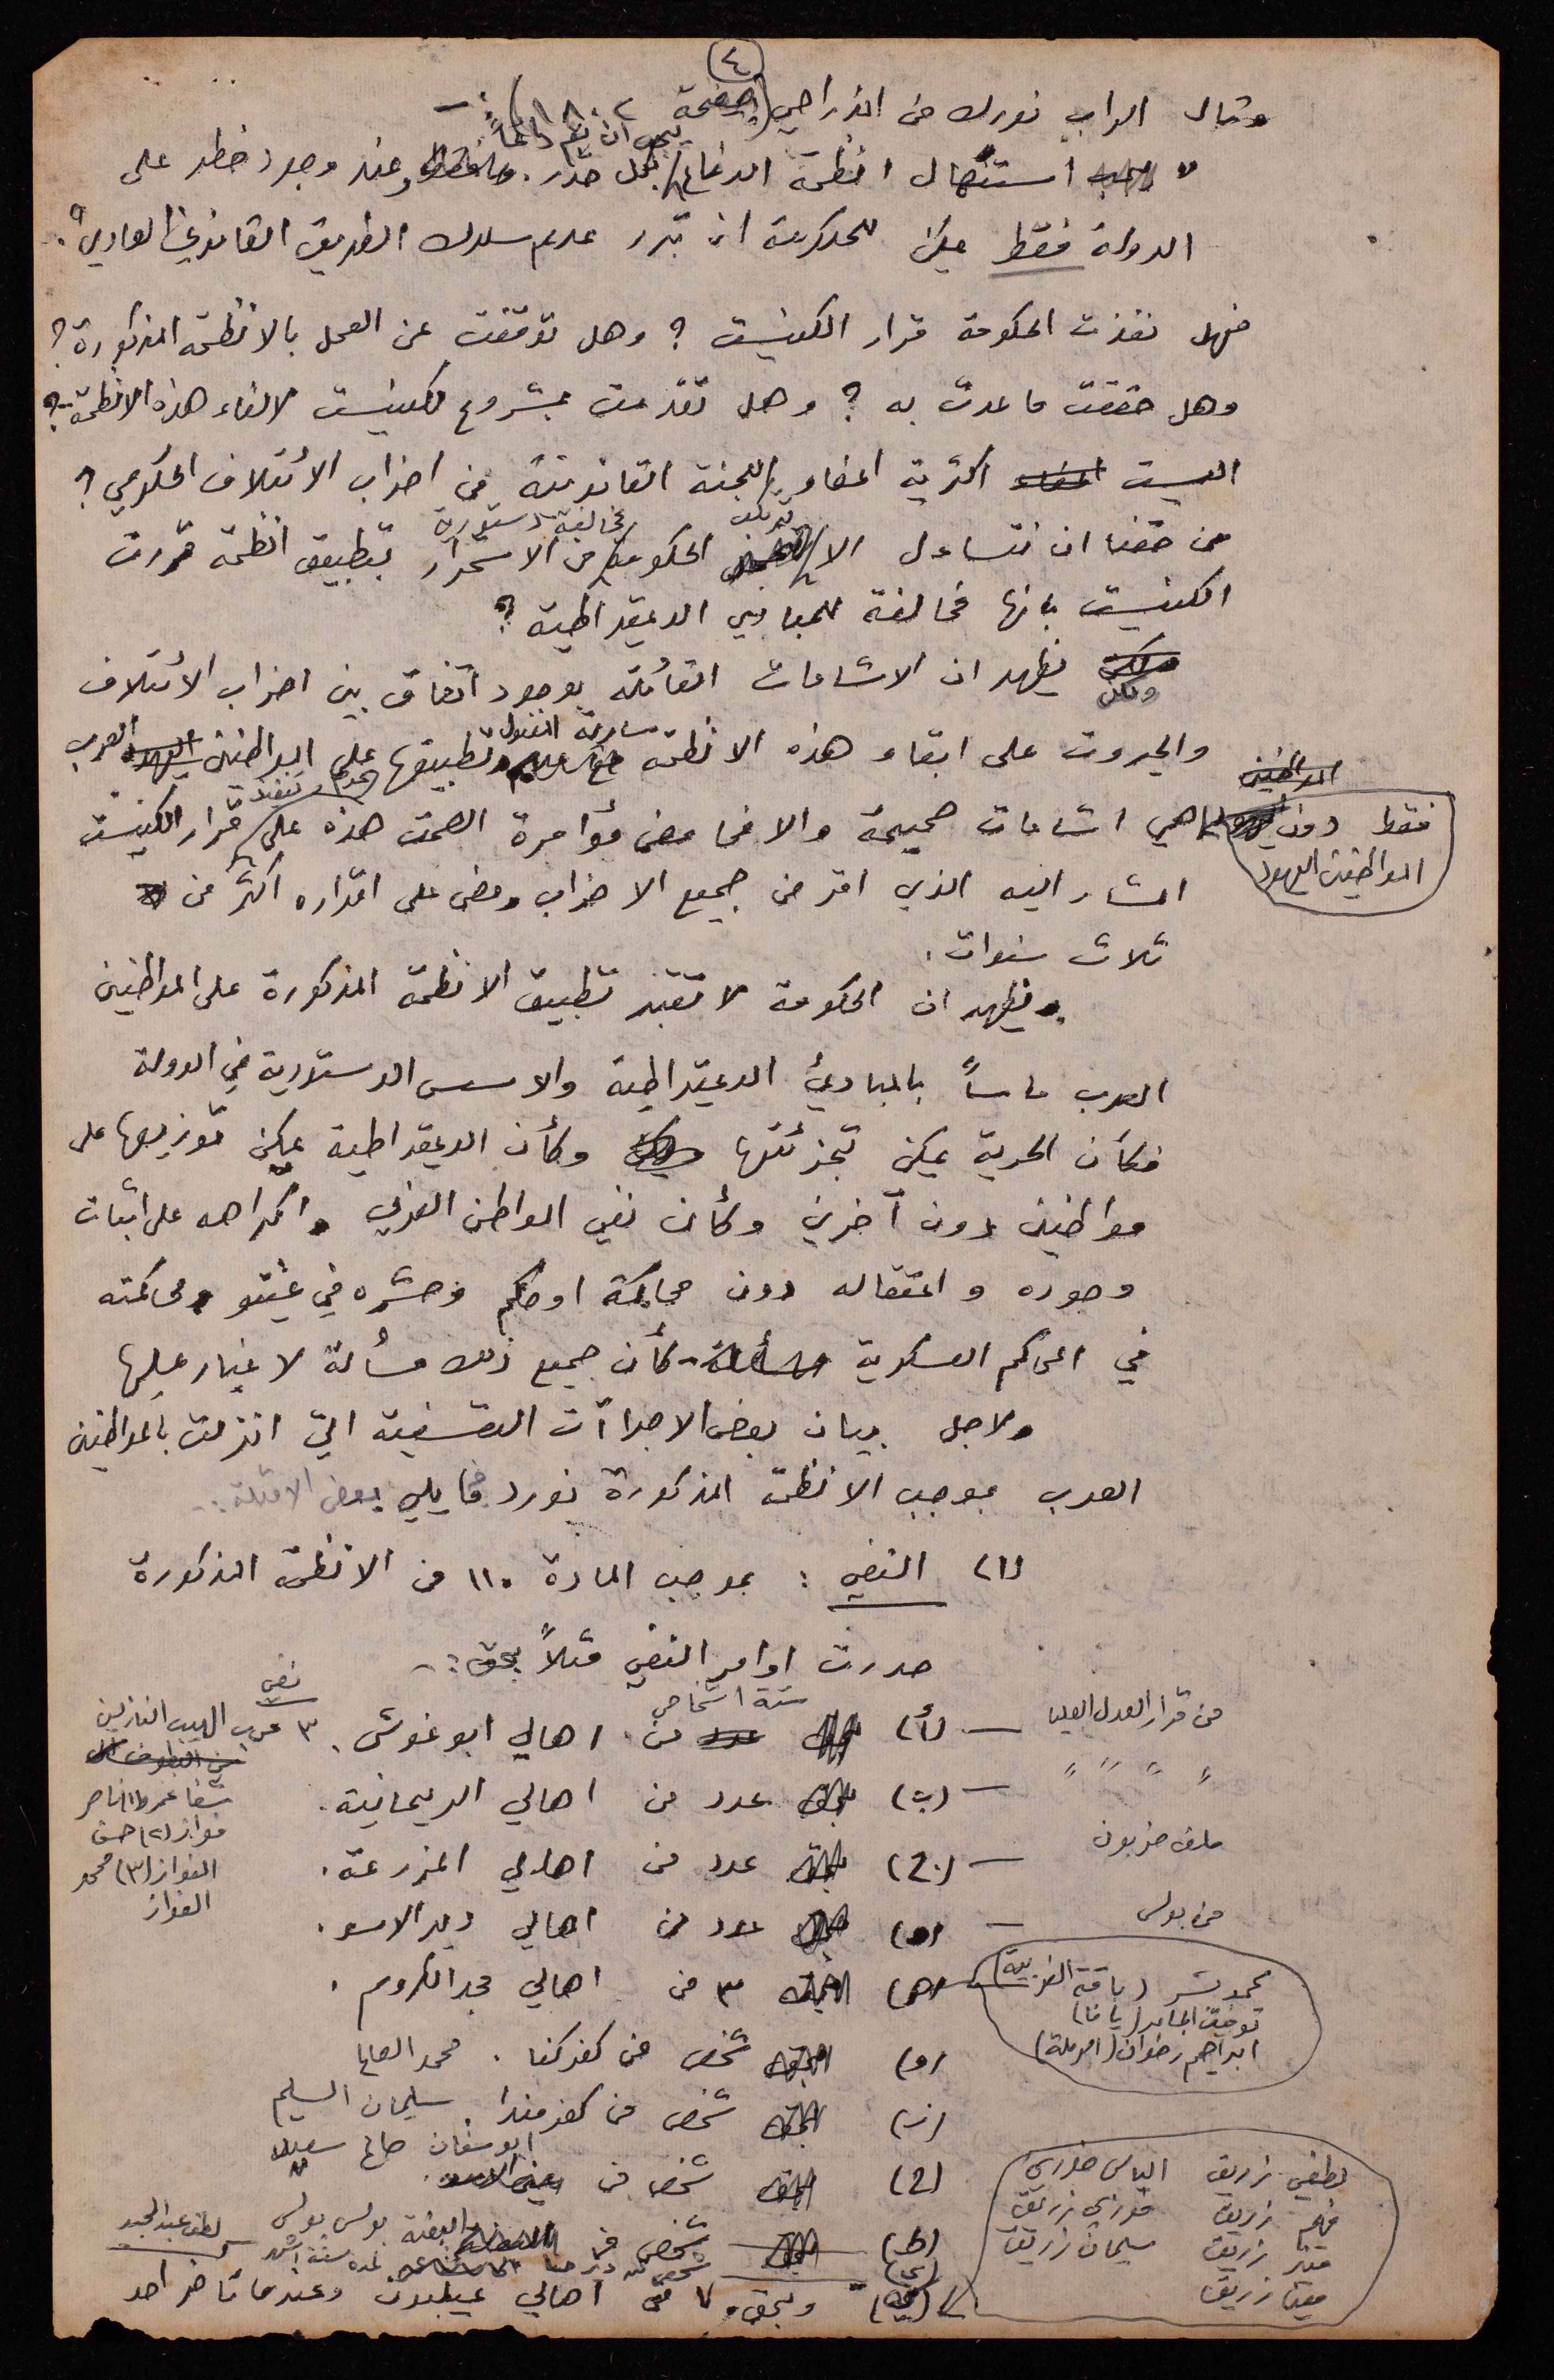 ٤
وقال النائب نورك من الزراحي (صفحة ١٨٠٢) :-
" استعمال انظمة الدفاع يجب ان يتم دائماً بكل حذر. وعند وجود خطر على
الدولة فقط يمكن للحكومة ان تبرر عدم سلوك الطريق القانوني العادي".
فهل نفذت الحكومة قرار الكنيست ؟ وهل توقفت عن العمل بالانظمة المذكورة ؟
وهل حققت ما عدت به ؟ وهل تقدمت بمشروع للكنيست لالغاء هذه الانظمة ؟
اليست اكثرية اعضاء اللجنة القانونية من احزاب الائتلاف الحكومي ؟
من حقنا ان نتساءل الا ترتكب الحكومة مخالفة دستورية من الاستمرار بتطبيق انظمة قررت
الكنيست بانها مخالفة للمبادئ الديمقراطية ؟
ولكن يظهر ان الاشاعات القائلة بوجود اتفاق بين احزاب الائتلاف
والحيروت على ابقاء هذه الانظمة سارية المفعول وتطبيقها على المواطنين العرب
فقط دون المواطنين اليهود هي اشاعات صحيحة والا فما معنى مؤامرة الصمت هذه على عدم تنفيذ قرار الكنيست
المشار اليه الذي اقر من جميع الاحزاب ومضى على اقراره اكثر من
ثلاث سنوات .
ويظهر ان الحكومة لا تعتبر تطبيق الانظمة المذكورة على المواطنين
العرب ماساً بالمبادئ الديمقراطية والاسس الدستورية في الدولة
فكأن الحرية يمكن تجزئتها وكأن الديمقراطية يمكن توزيعها على
مواطنين دون آخرين وكأن نفي المواطن العربي واكراهه على اثبات
وجوده واعتقاله دون محاكمة او حكم وحشره في غيتو ومحاكمته
في المحاكم العسكرية - كأن جميع ذلك مسألة لا غبار عليها
ولاجل بيان بعض الاجراآت التعسفية التي انزلت بالمواطنين
العرب بموجب الانظمة المذكورة نورد فيما يلي بعض الامثلة :-
(١) النفي : بموجب المادة ١١٠ من الانظمة المذكورة
صدرت اوامر النفي مثلاً بحق :-
من قرار العدل العليا — (أ) ستة اشخاص من اهالي ابو غوش .
" " " " — (ب) عدد من اهالي الريحانية .
ملف حزبون — (ج) عدد من اهالي المزرعة .
من بولس — (د) عدد من اهالي دير الاسد .
(هـ) ٣ من اهالي مجد الكروم .
(و) شخص من كفركنا . محمد العلي
(ز) شخص من كفرمندا . سليمان السليم
(ح) شخص من ابو سنان صالح سعيد
(ط) شخص من البعنة بولس بولس
شخص من دير حنا لمدة سنة
لطفي عبد المجيد
(ي) وبحق ٧ من اهالي عيلبون وعندما تأخر احد
نفي
٣ عرب الهيب النازلين
شفاعمرو (١) ناصر
فواز (٢) حسن
الفواز (٣) محمد
الفواز
محمد شر (باقة الغربية)
توفيق الجابر (يافا)
ابراهيم رضوان (الرملة)
لطفي زريق الياس خوري
فهيم زريق فوزي زريق
منير زريق سليمان زريق
زريق